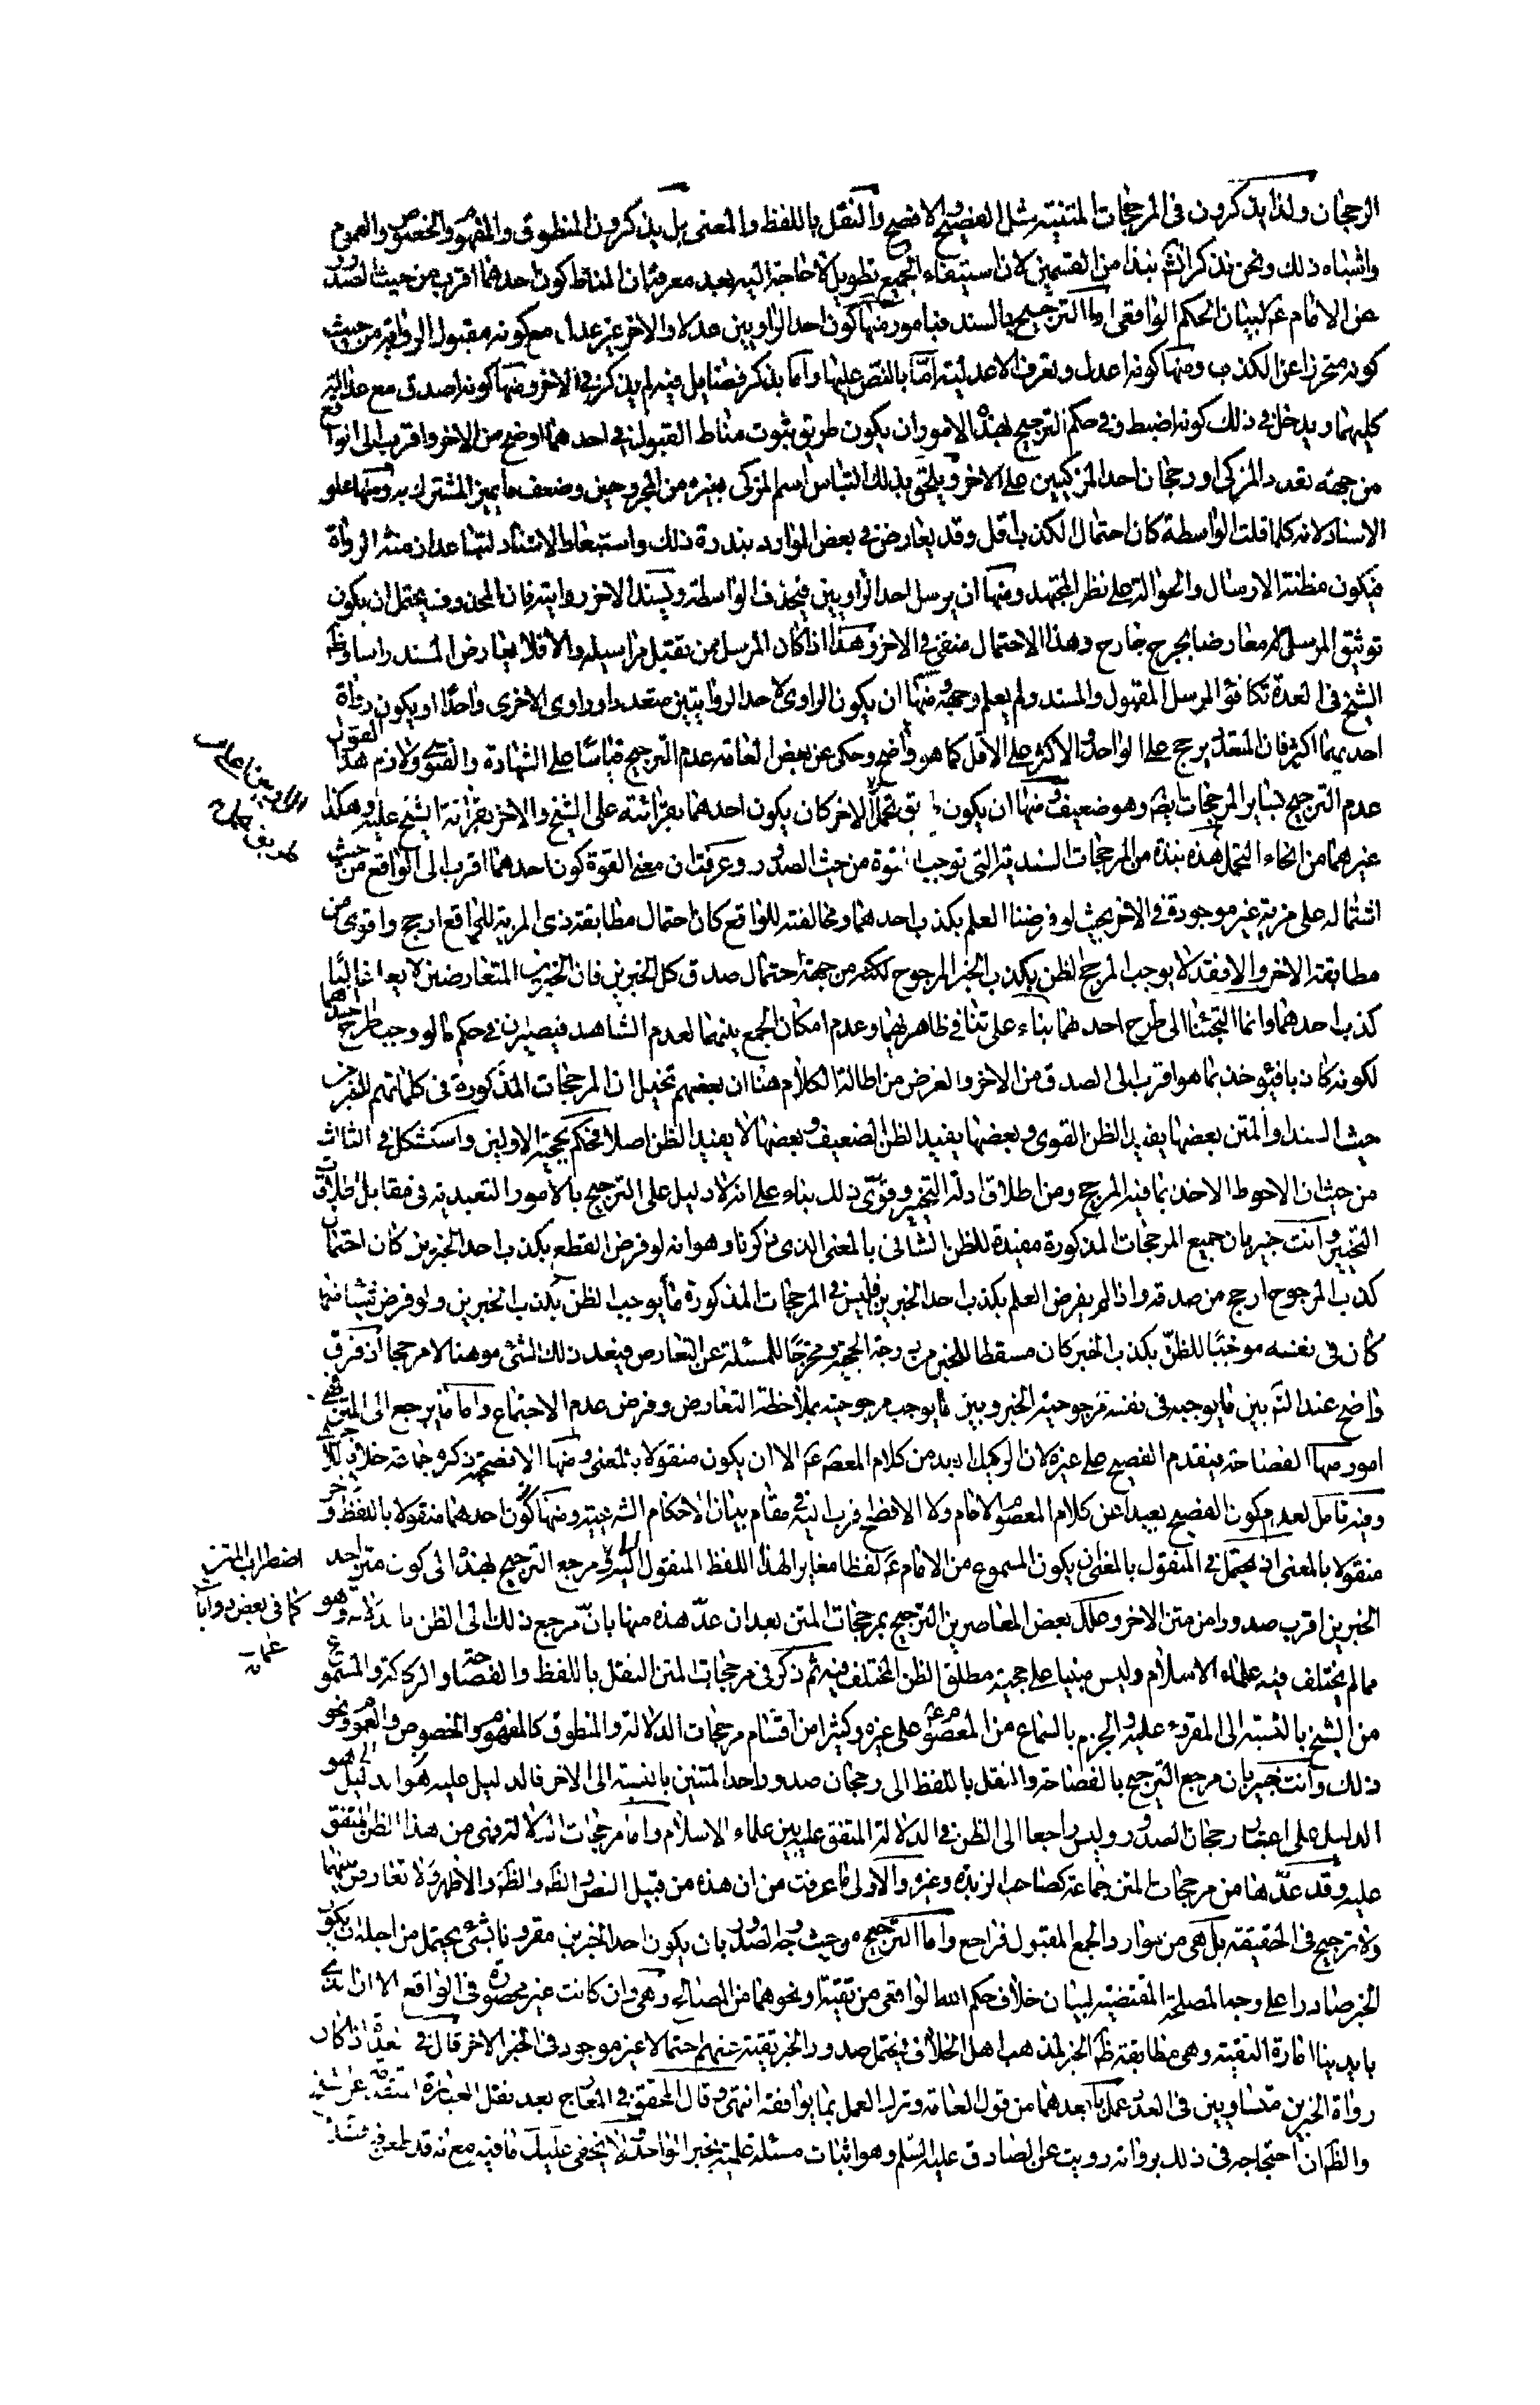 الرجحان ولذا يذكرون في المرجحات المتنية مثل الفصيح والافصح والنقل باللفظ والمعنى بل يذكرون المنطوق والمفهوم والخصوص والعموم
واشباه ذلك ونحن نذكر انش نبذا من القسمين لان استيفاء الجميع تطويل لا حاجة اليه بعد معرفة ان المناط كون احدهما اقرب من حيث الصدور
عن الامام ع لبيان الحكم الواقعى اما الترجيح بالسند فبامور منها كون احد الراويين عدلا والاخر غير عدل مع كونه مقبول الرواية من حيث
كونه متحرزا عن الكذب ومنها كونه اعدل وتعرف الاعدلية امّا بالنص عليها وامّا بذكر فضايل فيه لم يذكر في الاخر ومنها كونه اصدق مع عدالة
كليهما ويدخل في ذلك كونه اضبط وفي حكم الترجيح بهذه الامور ان يكون طريق ثبوت مناط القبول في احدهما اوضح من الاخر واقرب الى الواقع
من جهة تعدد المزكى او رجحان احد المزكيين على الاخر ويلحق بذلك التباس اسم المزكى بغيره من المجروحين وضعف ما يميز المشترك به ومنها علو
الاسناد لانه كلما قلت الواسطة كان احتمال الكذب اقل وقد يعارض في بعض الموارد بندرة ذلك واستبعاد الاسناد لتباعد ازمنة الرواة
فيكون مظنة الارسال والحوالة على نظر المجتهد ومنها ان يرسل احد الراويين فيحذف الواسطة ويسند الاخر روايته فان المحذوف يحتمل ان يكون
توثيق المرسل له معارضا بجرح جارح وهذا الاحتمال منفى في الاخر وهذا اذا كان المرسل ممن تقبل مراسيله والا فلا يعارض المسند راسا وظ
الشيخ في العدة تكافؤ المرسل المقبول والمسند ولم يعلم وجهه ومنها ان يكون الراوى لاحد الروايتين متعددا وراوى الاخرى واحدا او يكون رواة
احديهما اكثر فان المتعدد يرجح على الواحد والاكثر على الاقل كما هو واضح وحكى عن بعض العامة عدم الترجيح قياسًا على الشهادة والفتوى ولازم هذا القول
عدم الترجيح بساير المرجحات ايضا وهو ضعيف ومنها ان يكون تحمل الاخر كان يكون احدهما بقرائته على الشيخ والاخر بقرائة الشيخ عليه وهكذا
غيرهما من انحاء التحمل هذه نبذة من المرجحات السندية التى توجب القوة من حيث الصدور وعرفت ان معنى القوة كون احدهما اقرب الى الواقع من حيث
اشتماله على مزية غير موجودة في الاخر بحيث لو فرضنا العلم بكذب احدهما ومخالفته للواقع كان احتمال مطابقة ذى المزية للواقع ارجح واقوى من
مطابقة الاخر والا فقد لا يوجب المرجح الظن بكذب الخبر المرجوح لكنه من جهة احتمال صدق كلا الخبرين فان الخبرين المتعارضين لا يعلم غالبًا
كذب احدهما وانما التجئنا الى طرح احدهما بناء على تنافى ظاهريهما وعدم امكان الجمع بينهما لعدم الشاهد فيصيران في حكم ما لو وجب طرح احدهما
لكونه كاذبا فيؤخذ بما هو اقرب الى الصدق من الاخر والغرض من اطالة الكلام هنا ان بعضهم تخيل ان المرجحات المذكورة في كلماتهم للخبر من
حيث السند او المتن بعضها يفيد الظن القوى وبعضها يفيد الظن الضعيف وبعضها لا يفيد الظن اصلا فحكم بحجية الاولين واستشكل في الثالث
من حيث ان الاحوط الاخذ بما فيه المرجح ومن اطلاق ادلة التخيير وقوّى ذلك بناء على انه لا دليل على الترجيح بالامور التعبدية في مقابل اطلاقات
التخيير وانت خبير بان جميع المرجحات المذكورة مفيدة للظن الشانى بالمعنى الذى ذكرنا وهو انه لو فرض القطع بكذب احد الخبرين كان احتمال
كذب المرجوح ارجح من صدقه واذا لم يفرض العلم بكذب احد الخبرين فليس في المرجحات المذكورة ما يوجب الظن بكذب الخبرين ولو فرض شيئا منها
كان في نفسه موجبًا للظنّ بكذب الخبر كان مسقطا للخبر من درجة الحجية ومخرجًا للمسئلة عن التعارض فيعد ذلك الشئ موهنا لا مرجحا اذ فرق
واضح عند التّ بين ما يوجب في نفسه مرجوحية الخبر وبين ما يوجب مرجوحيته بملاحظة التعارض وفرض عدم الاجتماع واما ما يرجع الى المتن فهي
امور منها الفصاحة فيقدم الفصيح على غيره لان الركيك ابعد من كلام المعصوم ع الا ان يكون منقولا بالمعنى ومنها الافصحية ذكره جماعة خلافا لاخرين
وفيه تامل لعدم كون الفصيح بعيدا عن كلام المعصوم الامام ولا الافصح اقرب اليه في مقام بيان الاحكام الشرعية ومنها كون احدهما منقولا باللفظ والاخر
منقولا بالمعنى اذ يحتمل في المنقول بالمعنى ان يكون المسموع من الامام ع لفظا مغايرا لهذا اللفظ المنقول اليه ومرجع الترجيح بهذه الى كون متن احد
الخبرين اقرب صدورا من متن الاخر وعلل بعض المعاصرين الترجيح بمرجحات المتن بعد ان عدّ هذه منها بانّ مرجع ذلك الى الظن بالدلالة وهو
مما لم يختلف فيه علماء الاسلام وليس مبنيا على حجية مطلق الظن المختلف فيه ثم ذكر في مرجحات المتن النقل باللفظ والفصاحة والركاكة والمسموع
من الشيخ بالنسبة الى المقروء عليه والجزم بالسماع من المعصوم ع على غيره وكثيرا من اقسام مرجحات الدلالة والمنطوق كالمفهوم والخصوص والعموم ونحو
ذلك وانت خبير بان مرجع الترجيح بالفصاحة والنقل باللفظ الى رجحان صدور احد المتنين بالنسبة الى الاخر فالدليل عليه هو الدليل
الدليل على اعتبار رجحان الصدور وليس راجعا الى الظن في الدلالة المتفق عليه بين علماء الاسلام واما مرجحات الدلالة فهى من هذا الظن المتفق
عليه وقد عدّها من مرجحات المتن جماعة كصاحب الزبدة وغيره والاولى ما عرفت من ان هذه من قبيل النص والظّ والظّ والاظهر ولا تعارض بينهما
ولا ترجيح في الحقيقة بل هى من موارد الجمع المقبول فراجع واما الترجيح من حيث وجه الصدور بان يكون احد الخبرين مقرونا بشئ يحتمل من اجله ان يكون
الخبر صادرا على وجه المصلحة المقتضية لبيان خلاف حكم الله الواقعى من تقية او نحوهما من المصالح وهى وان كانت غير محصورة في الواقع الا ان الذى
بايدينا امارة التقية وهى مطابقة ظ الخبر لمذهب اهل الخلاف فيحتمل صدور الخبر تقية عنهم احتمالا غير موجود في الخبر الاخر قال في العدة اذا كان
رواة الخبرين متساويين في العدد عمل بابعدهما من قول العامة وترك العمل بما يوافقه انتهى وقال المحقق في المعارج بعد نقل العبارة المتقدمة عن الشيخ
والظ ان احتجاجه في ذلك برواية رويت عن الصادق عليه السّلم وهو اثبات مسئلة علمية بخبر الواحد ولا يخفى عليك ما فيه مع انه قد طعن فيه
اضطراب المتن
كما في بعض روايات
عمار